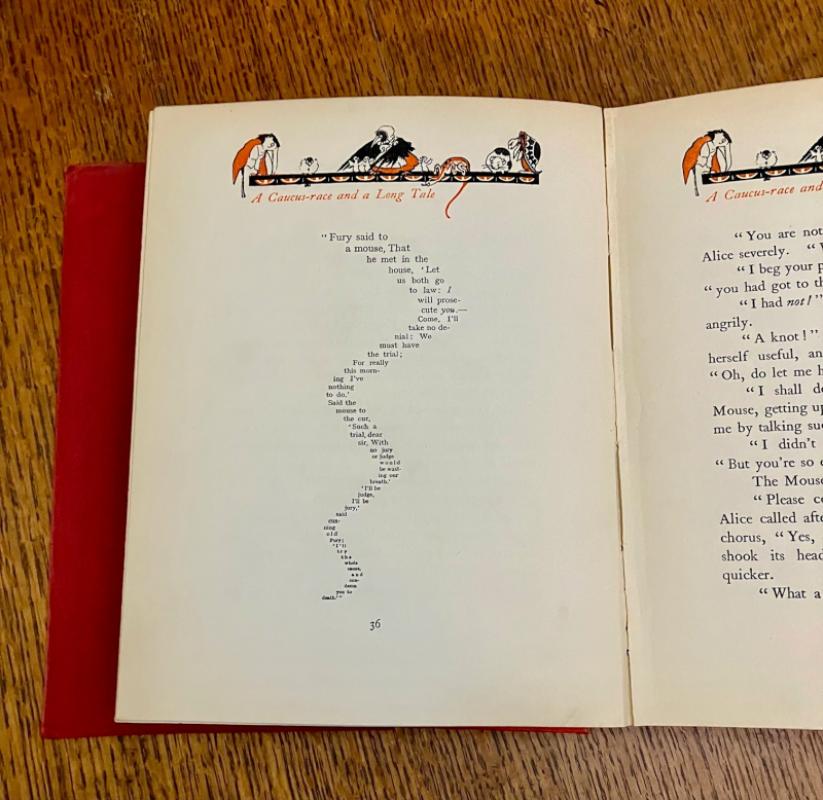 A Caucus-race and a Long Tale
“Fury said to
a mouse, That
he met in the
house, ‘Let
us both go
to law: I
will prose-
cute you.—
Come, I’ll
take no de-
nial: We
must have
the trial;
For really
this morn-
ing I’ve
nothing
to do.’
Said the
mouse to
the cur,
‘Such a
trial, dear
sir, With
no jury
or judge
would
be wast-
ing our
breath.’
‘I’ll be
judge,
I’ll be
jury,’
said
cun-
ning
old
Fury;
‘I’ll
try
the
whole
cause,
and
con-
demn
you to
death.’”
36
A Caucus-race and
“You are not
Alice severely. “
“I beg your
“you had got to th
“I had not!”
angrily.
“A knot!”
herself useful, an
“Oh, do let me h
“I shall do
Mouse, getting up
me by talking suc
“I didn’t
“But you’re so
The Mouse
“Please
Alice called afte
chorus, “Yes,
shook its head
quicker.
“What a